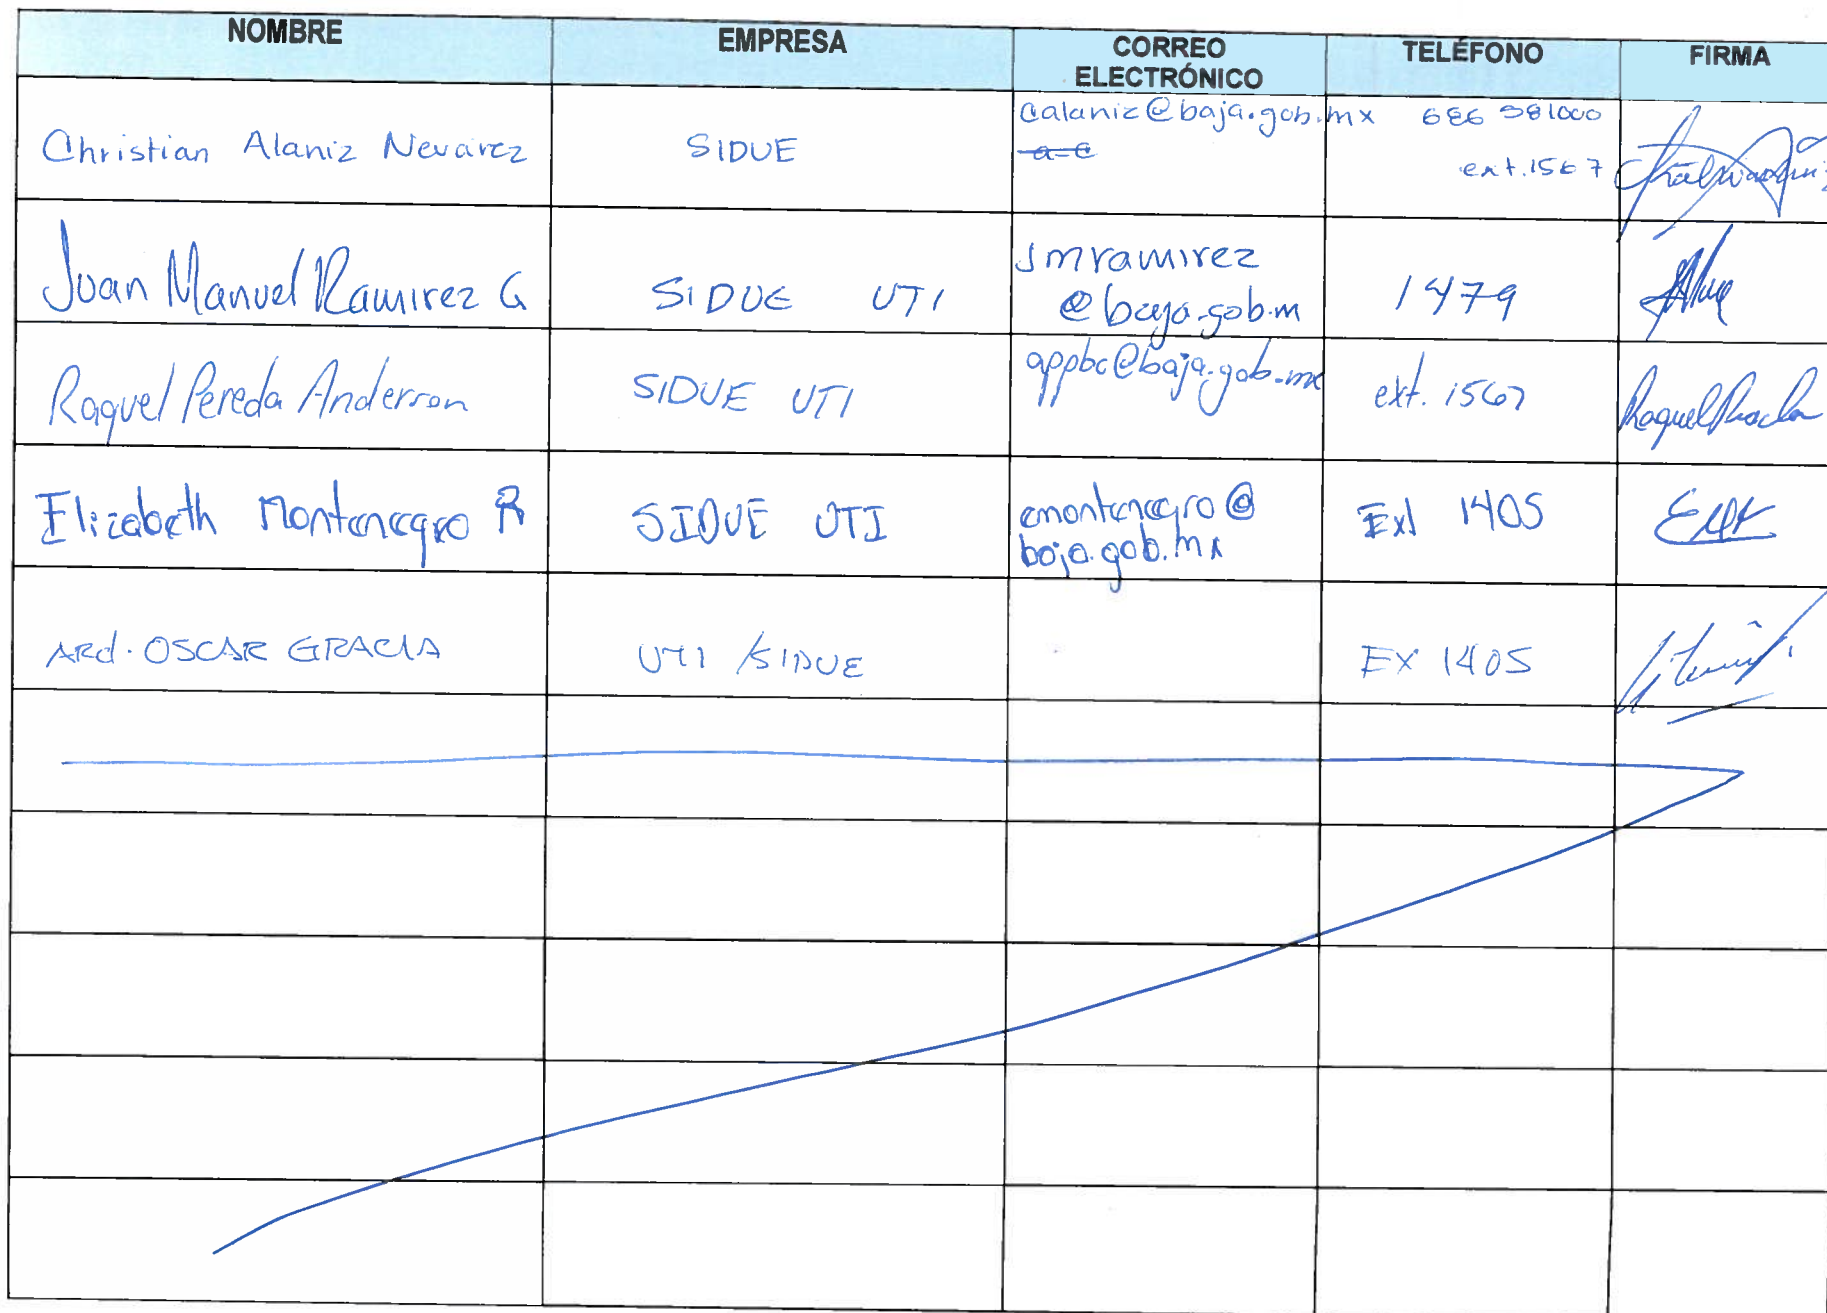 NOMBRE EMPRESA CORREO ELECTRÓNICO TELÉFONO FIRMA
Christian Alaniz Nevárez SIDUE calaniz@baja.gob.mx 686 581000
ext. 1567
Juan Manuel Ramirez G SIDUE UTI jmramirez
@baja.gob.m 1479
Raquel Pereda Anderson SIDUE UTI appbc@baja.gob.mx ext. 1567
Elizabeth Montenegro R SIDUE UTI emontenegro@
baja.gob.mx Ext 1405
ARQ. OSCAR GRACIA UTI / SIDUE EX 1405